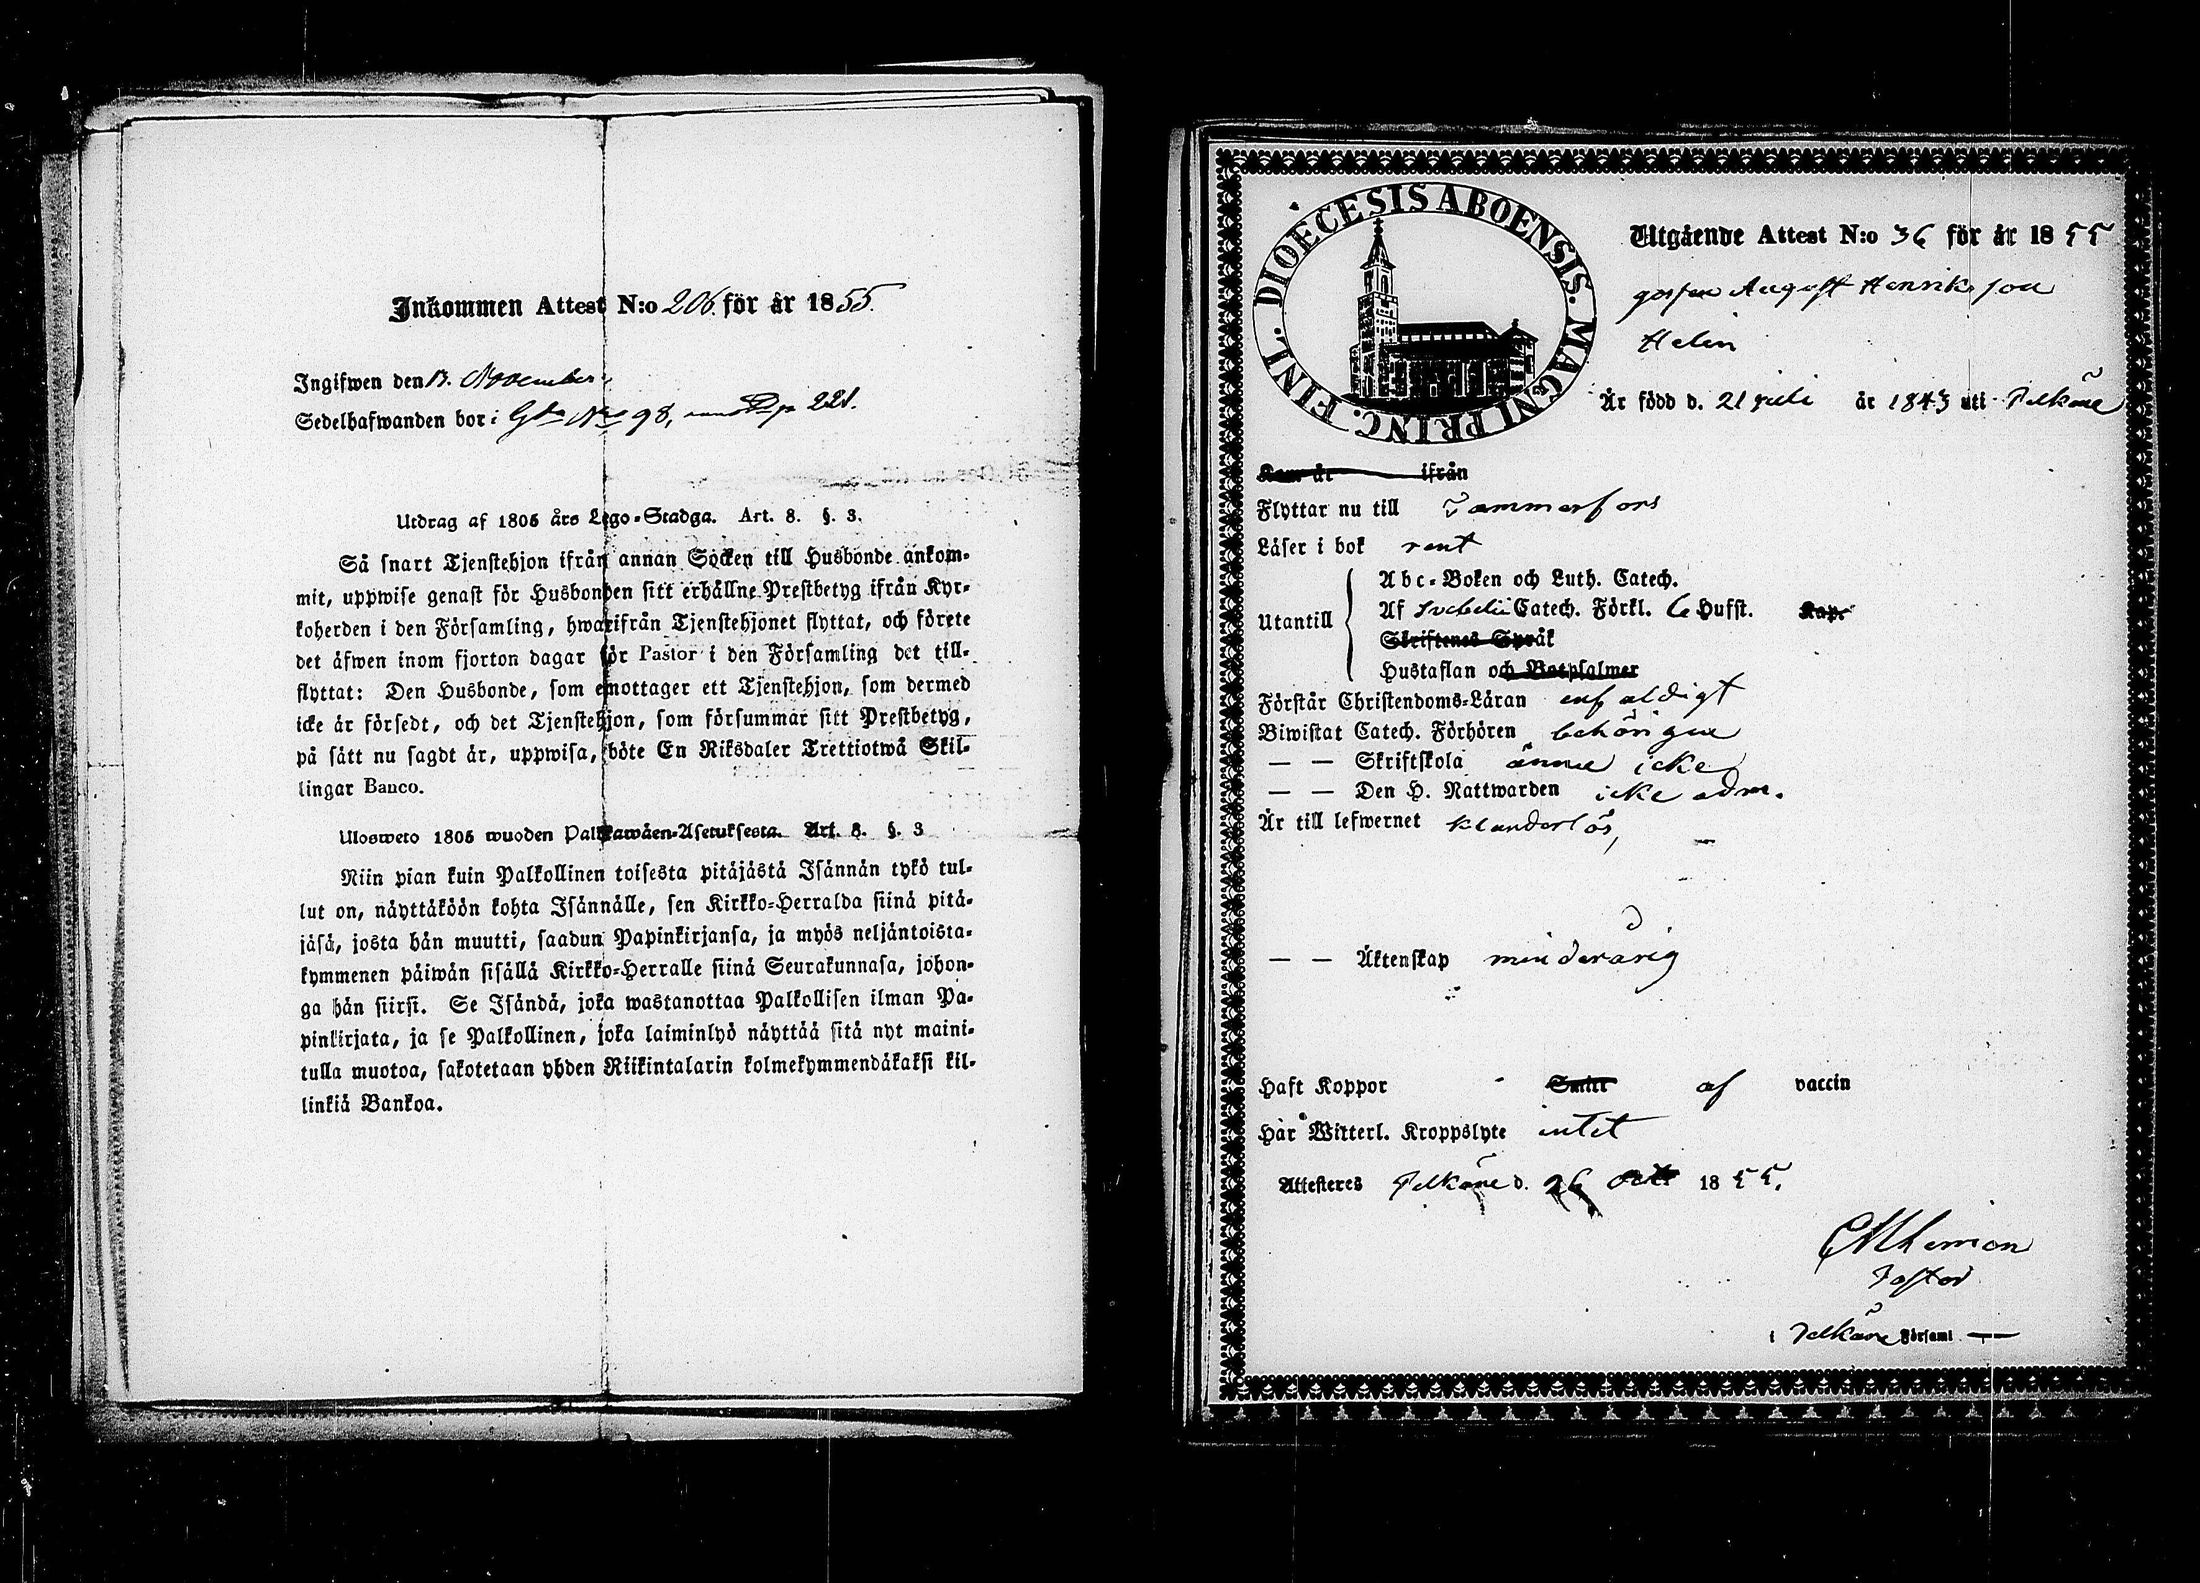 Inkommen Attest N:o 206. för år 1855.
Ingifwen den 13. November
Sedelhafwanden bor i Gdn No 98, p 221.
Utdrag af 1805 års Lego-Stadga. Art. 8. §. 3.
Så snart Tjenstehjon ifrån annan Socken till Husbonde ankom-
mit, uppwise genast för Husbonden sitt erhållne Prestbetyg ifrån Kyr-
koherden i den Församling, hwarifrån Tjenstehjonet flyttat, och förete
det äfwen inom fjorton dagar för Pastor i den Församling det till-
flyttat: Den Husbonde, som emottager ett Tjenstehjon, som dermed
icke är försedt, och det Tjenstehjon, som försummar sitt Prestbetyg,
på sätt nu sagdt är, uppwisa, böte En Riksdaler Trettiotwå Skil-
lingar Banco.
Ulosweto 1805 wuoden Palkawäen-Asetuksesta. Art. 8. §. 3
Niin pian kuin Palkollinen toisesta pitäjästä Isännän tykö tul-
lut on, näyttäköön kohta Isännälle, sen Kirkko-Herralda siinä pitä-
jäsä, josta hän muutti, saadun Papinkirjansa, ja myös neljäntoista-
kymmenen päiwän sisällä Kirkko-Herralle siinä Seurakunnasa, johon-
ga hän siirsi. Se Isändä, joka wastanottaa Palkollisen ilman Pa-
pinkirjata, ja se Palkollinen, joka laiminlyö näyttää sitä nyt maini-
tulla muotoa, sakotetaan yhden Riikintalarin kolmekymmendäkaksi kil-
linkiä Bankoa.
DIOECESIS ABOENSIS. MAGNI PRINC. FINL.
Utgående Attest N:o 36 för år 1855
gossen August Henriksson
Helin
Är född d. 21 juli år 1843 uti Pelkäne
Kom år ifrån
Flyttar nu till Tammerfors
Läser i bok rent
Utantill
Abc-Boken och Luth. Catech.
Af Svebelii Catech. Förkl. 6 Hufst. Kap.
Skriftenes Språk
Hustaflan och Botpsalmer
Förstår Christendoms-Läran enfaldigt
Biwistat Catech. Förhören behörigen
— — Skriftskola ännu icke
— — Den H. Nattwarden icke adm.
Är till lefwernet klanderlös,
— — Äktenskap minderårig
Haft Koppor Smitt af vaccin
Har Witterl. Kroppslyte intet
Attesteres Pelkäne d. 26 Oct 1855.
Pastor
i Pelkäne Församl